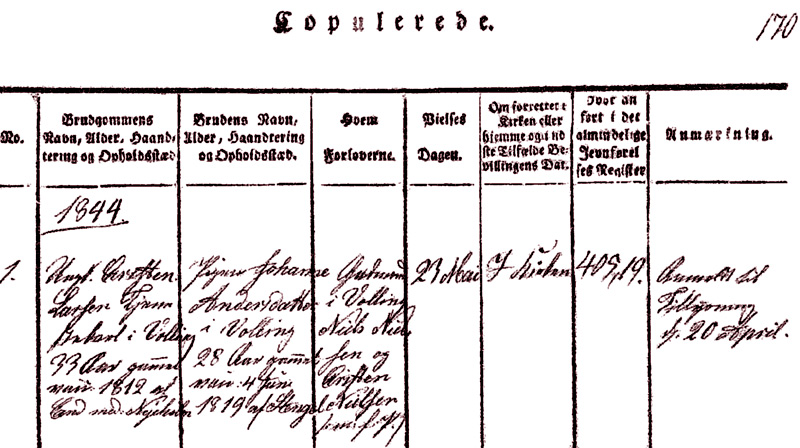 Kopulerede.
170
No.
Brudgommens
Navn, Alder, Haand-
tering og Opholdsstæd
Brudens Navn,
Alder, Haandtering
og Opholdsstæd.
Hvem
Forloverne.
Vielses
Dagen.
Om forrettet i
Kirken eller
hjemme og i sid
ste Tilfælde Be-
villingens Dat.
Hvor an
ført i det
almindelige
Jevnførel
ses Register
Anmærkning.
1844.
1.
Ungk. Cristen
Larsen Tjene
stekarl i Volling
33 Aar gammel
vacc. 1812 af
Pigen Johanne
Andersdatter
i Volling
28 Aar gammel
vacc. 4 Juni
1819 af
Gaardmd
i Volling
Niels Niel
sen og
Cristen
Nielsen
23 Mai
I Kirken
405, 19.
Anmeldt til
d. 20 April.